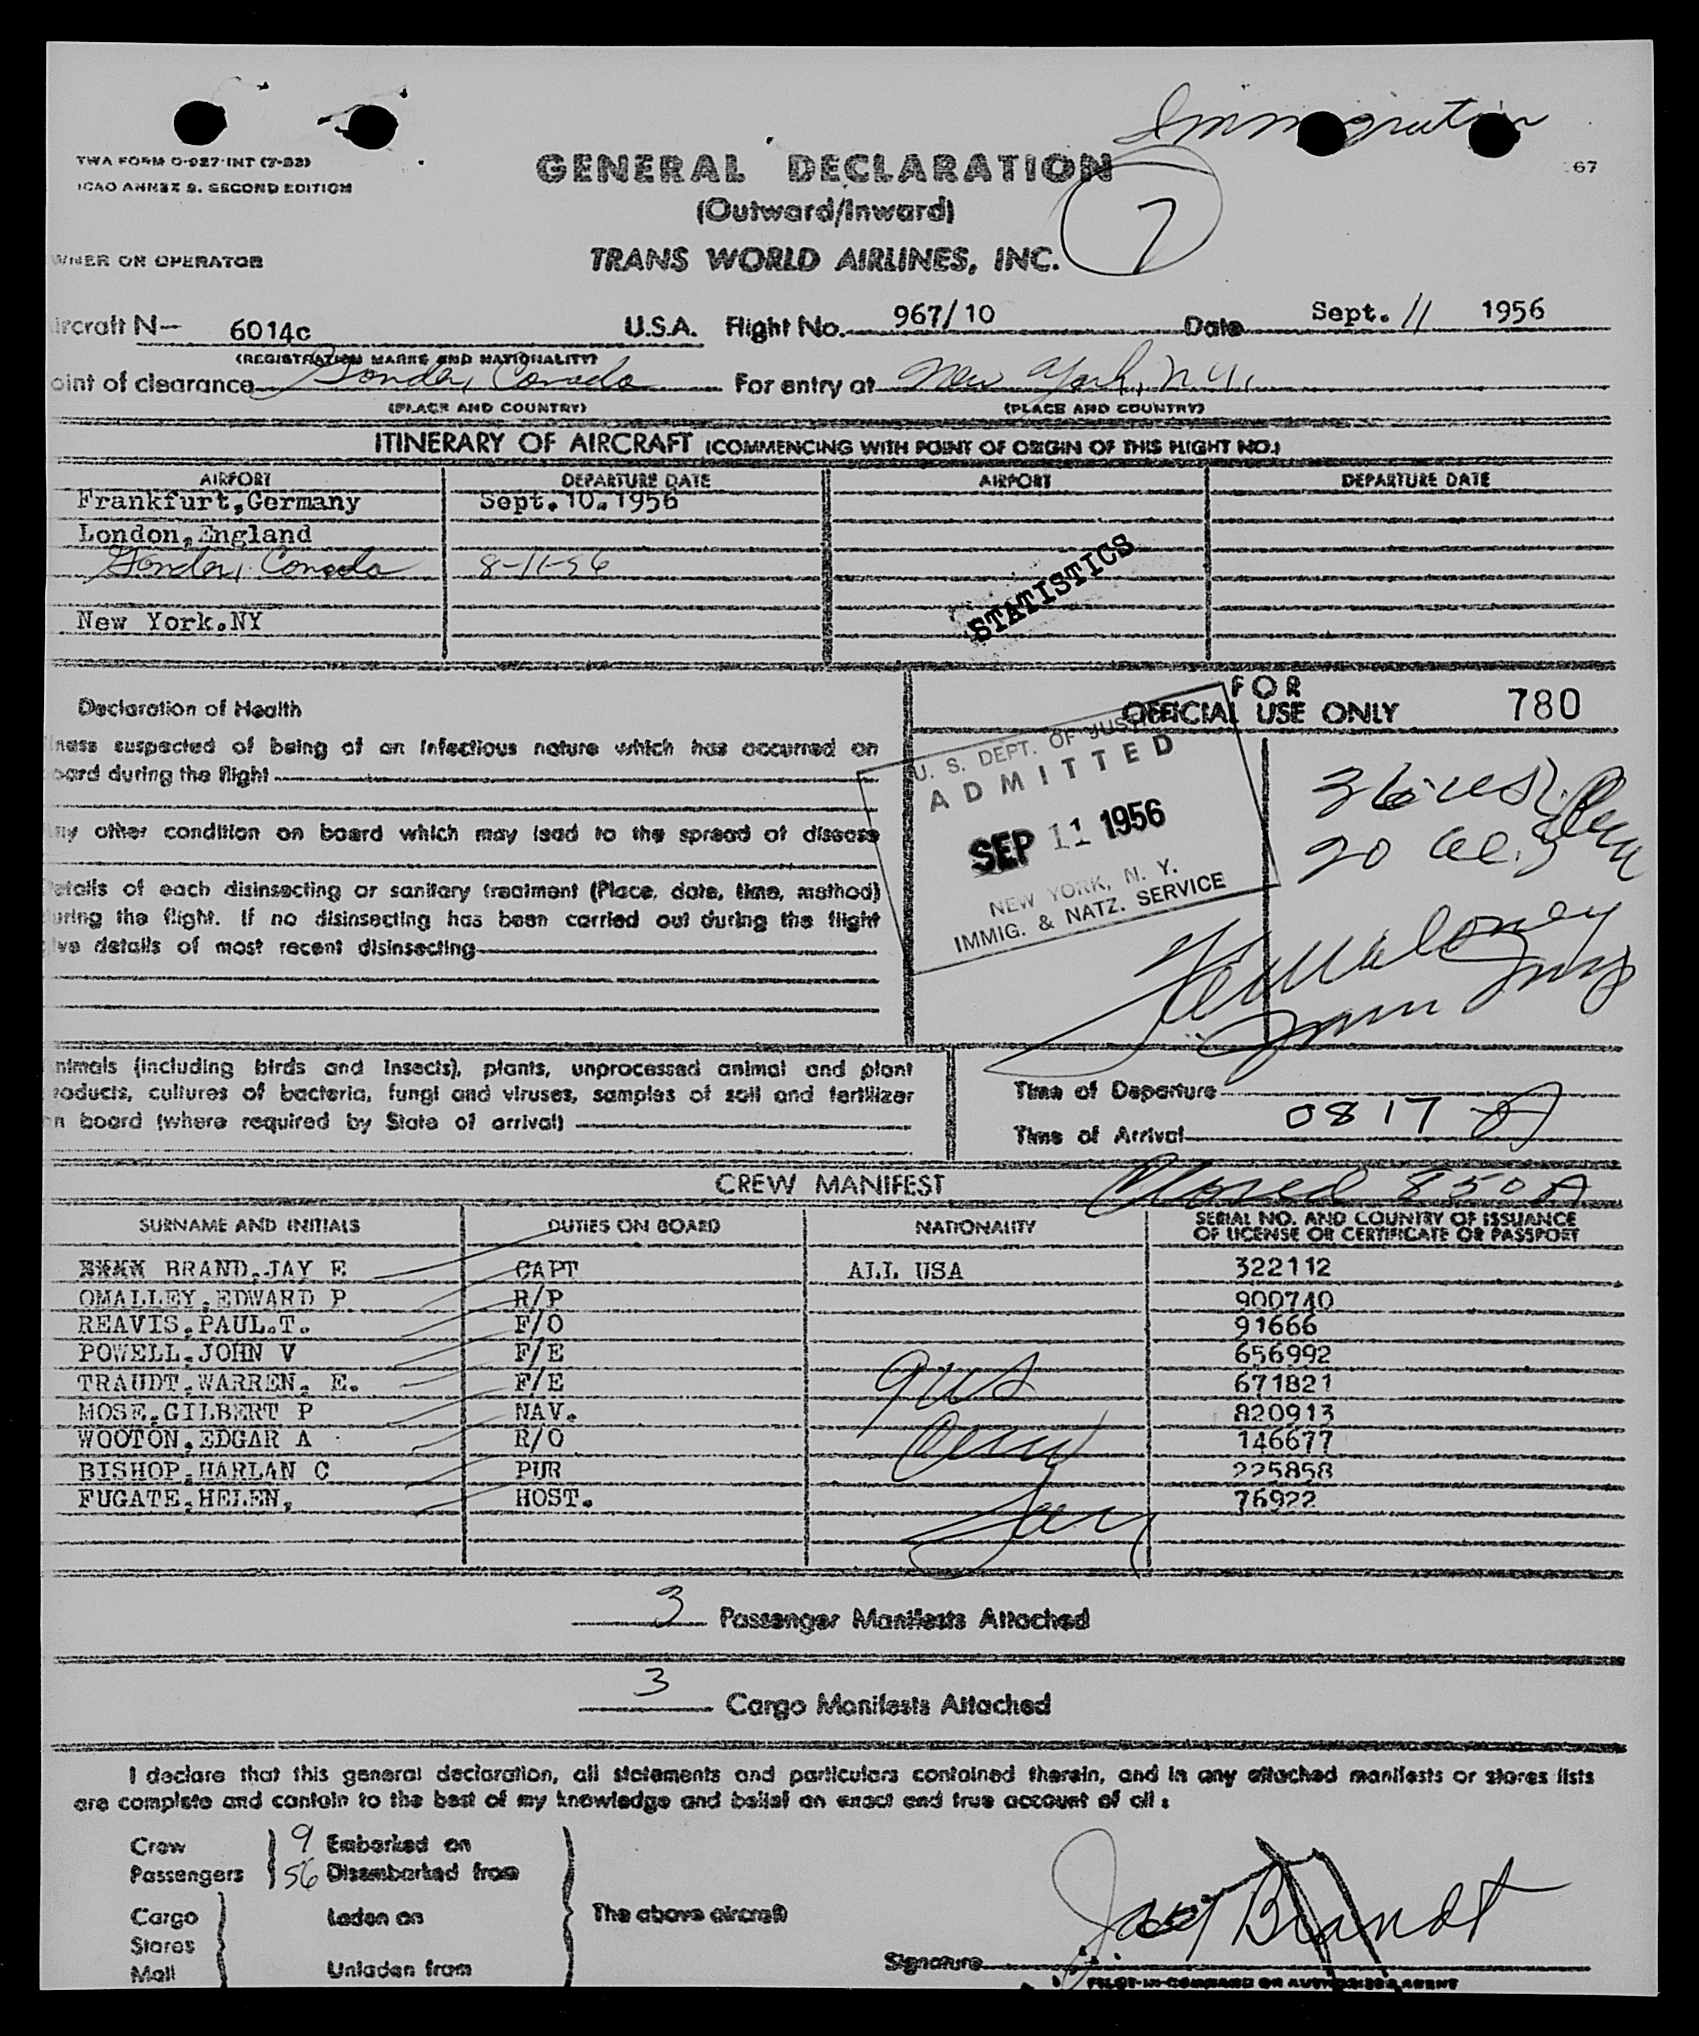 Immigration
TWA FORM O-927-INT (7-53)
ICAO ANNEX 9. SECOND EDITION
GENERAL DECLARATION
67
(Outward/Inward)
7
WNER OR OPERATOR
TRANS WORLD AIRLINES, INC.
ircraft N- 6014c U.S.A. Flight No. 967/10 Date Sept. 11 1956
(REGISTRATION MARKS AND NATIONALITY)
oint of clearance Gander, Canada For entry at New York, N.Y.
(PLACE AND COUNTRY) (PLACE AND COUNTRY)
ITINERARY OF AIRCRAFT (COMMENCING WITH POINT OF ORIGIN OF THIS FLIGHT NO.)
AIRPORT DEPARTURE DATE AIRPORT DEPARTURE DATE
Frankfurt,Germany Sept.10.1956
London,England
Gander, Canada 8-11-56
STATISTICS
New York.NY
FOR
OFFICIAL USE ONLY 780
Declaration of Health
lness suspected of being of an infectious nature which has occurred on
oard during the flight
ny other condition on board which may lead to the spread of disease
etails of each disinsecting or sanitary treatment (Place, date, time, method)
uring the flight. If no disinsecting has been carried out during the flight
ive details of most recent disinsecting
U. S. DEPT. OF JUSTICE
ADMITTED
SEP 11 1956
NEW YORK, N. Y.
IMMIG. & NATZ. SERVICE
36
20
nimals (including birds and insects), plants, unprocessed animal and plant
roducts, cultures of bacteria, fungi and viruses, samples of soil and fertilizer
n board (where required by State of arrival)
Time of Departure
Time of Arrival 0817 A
CREW MANIFEST
Closed 850 A
SURNAME AND INITIALS DUTIES ON BOARD NATIONALITY SERIAL NO. AND COUNTRY OF ISSUANCE
OF LICENSE OR CERTIFICATE OR PASSPORT
XXXX BRAND,JAY E CAPT ALL USA 322112
OMALLEY,EDWARD P R/P 900740
REAVIS,PAUL.T. F/O 91666
POWELL,JOHN V F/E 656992
TRAUDT,WARREN, E. F/E 671821
MOSE,GILBERT P NAV. 820913
WOOTON,EDGAR A R/O 146677
BISHOP,HARLAN C PUR 225858
FUGATE,HELEN, HOST. 76922
9 US
3 Passenger Manifests Attached
3 Cargo Manifests Attached
I declare that this general declaration, all statements and particulars contained therein, and in any attached manifests or stores lists
are complete and contain to the best of my knowledge and belief an exact and true account of all :
Crew 9 Embarked on
Passengers 56 Disembarked from
Cargo Laden on The above aircraft
Stores
Mail Unladen from
Signature Jay Brandt
PILOT-IN-COMMAND OR AUTHORISED AGENT